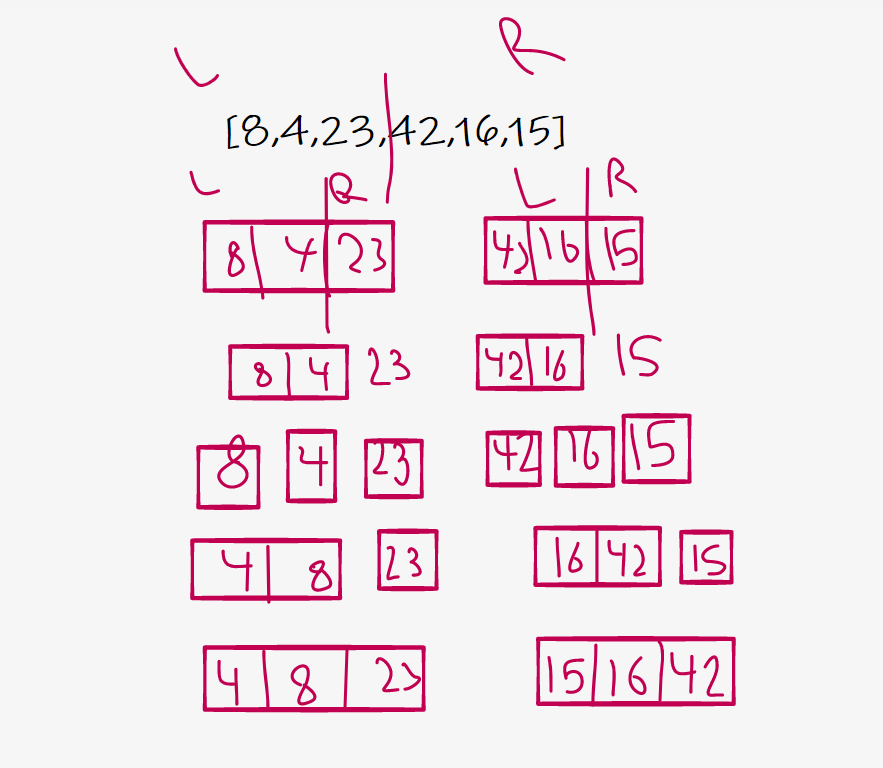 L R
[8,4,23,42,16,15]
L R L R
8 4 23 42 16 15
8 4 23 42 16 15
8 4 23 42 16 15
4 8 23 16 42 15
4 8 23 15 16 42